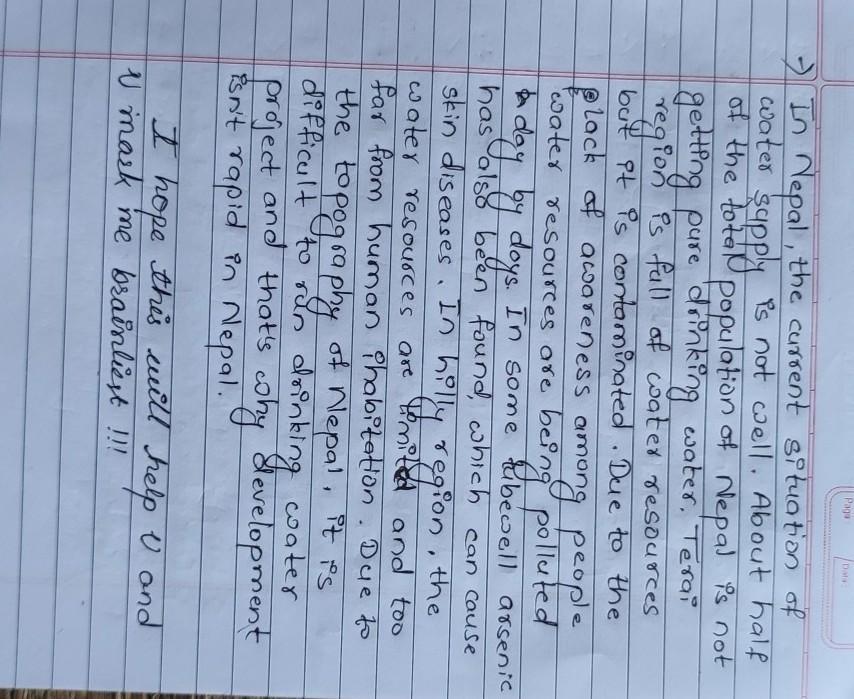 Page
Date
→ In Nepal, the current situation of
water supply is not well. About half
of the total population of Nepal is not
getting pure drinking water. Terai
region is full of water resources
but it is contaminated. Due to the
lack of awareness among people
water resources are being polluted
day by days. In some tubewell arsenic
has also been found, which can cause
skin diseases. In hilly region, the
water resources are limited and too
far from human inhabitation. Due to
the topography of Nepal, it is
difficult to run drinking water
project and that's why development
isn't rapid in Nepal.
I hope this will help U and
U mark me brainliest !!!